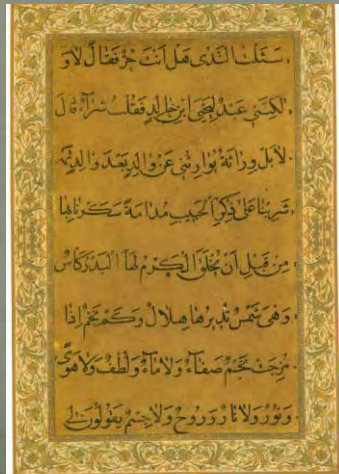 سَئَلْتُ النَّدٰى هَلْ اَنْتَ حُرٌّ فَقَالَ لَا وَ
لٰكِنَّنِى عَبْدٌ لِيَحْيَى ابْنِ خَالِدٍ فَقُلْتُ شِرَآءً قَالَ
لَا بَلْ وِرَاثَةً تَوَارَثَنِى عَنْ وَالِدٍ بَعْدَ وَالِدٍ
شَرِبْنَا عَلٰى ذِكْرِ الْحَبِيبِ مُدَامَةً سَكِرْنَا بِهَا
مِنْ قَبْلِ اَنْ يُخْلَقَ الْكَرْمُ لَهَا الْبَدْرُ كَأْسٌ
وَهِىَ شَمْسٌ يُدِيرُهَا هِلَالٌ وَكَمْ نَجْمٌ اِذَا
مُزِجَتْ نَجْمٌ صَفَآءٌ وَلَا مَآءٌ وَلُطْفٌ وَلَا هَوًى
وَنُورٌ وَلَا نَارٌ وَرُوحٌ وَلَا جِسْمٌ يَقُولُونَ لِى